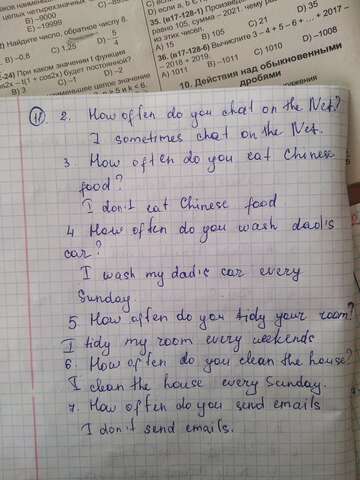 B) -8000
E) -19999
Найдите число, обратное числу 8.
B) -0,8
C) 1,25
При каком значении t функция
будет постоянной?
C) -1
D) -2
B) 3
35. (в17-128-1)
равно 105, сумма - 2021.
из этих чисел.
A) 15
B) 105
C) 21
D) 35
36. (в17-128-6) Вычислите 3 - 4 + 5 - 6 + ... + 2017 -
- 2018 + 2019.
A) 1011
B) -1011
C) 1010
D) -1008
10. Действия над обыкновенными
дробями
18
2. How often do you chat on the Net?
I sometimes chat on the Net.
3. How often do you eat Chinese
food?
I don't eat Chinese food
4. How often do you wash dad's
car?
I wash my dad's car every
Sunday.
5. How often do you tidy your room?
I tidy my room every weekends
6. How often do you clean the house?
I clean the house every Sunday.
7. How often do you send emails
I don't send emails.